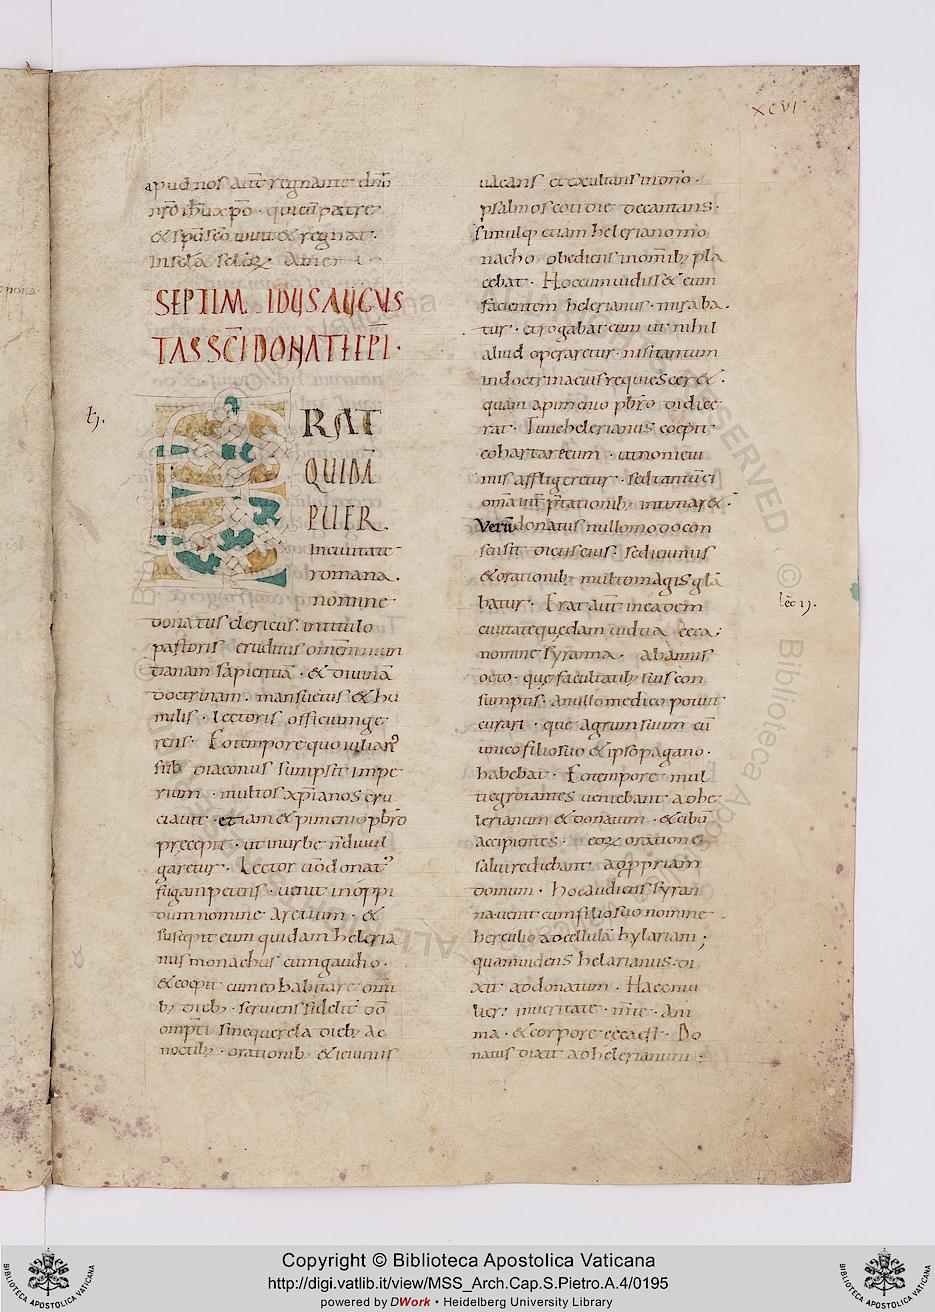 XCVI
apud nos aut̄ regnante dn̄o
nr̄o ih̄u xp̄o · qui cū patre
& sp̄u sc̄o uiuit & regnat ·
in sc̄la sc̄lorꝝ Amen
SEPTIM IDUS AUGUS
TAS SC̄I DONATI EP̄I ·
ERAT
QUIDĀ
PUER
In ciuitate
romana .
nomine
donatus clericus . in titulo
pastoris eruditus omnem mun
danam sapientiā · & diuinā
doctrinam . mansuetus & hu
milis · lectoris officium ge
rens · Eo tempore quo iulianꝰ
sub diaconus sumpsit impe
rium · multos xp̄ianos cru
ciauit · etiam & pimenio pbr̄o
precepit · ut in urbe n̄ diuul
garetur · Lector u͞o donatꝰ
fugam petens · uenit in oppi
dum nomine aretium · &
suscepit eum quidam heleria
nus monachus cum gaudio ·
& coepit cum eo habitare omi
bꝫ diebꝫ · seruiens fidelit̄ dō
omp̄ti sine querela diebꝫ ac
noctibꝫ · orationibꝫ & ieiuniis
uacans et exultans in dn̄o ·
psalmos cotidie decantans ·
simulq; etiam heleriano mo
nacho obediens in om̄ibꝫ pla
cebat · Hoc cum uidiss& eum
facientem helerianus · miraba .
tur · et rogabat eum ut nihil
aliud operaretur · nisi tantum
in doctrina eius requiescer& ·
quam a pimenio pbr̄o didice
rat · Tunc helerianus coepit
cohortare eum · ut non ieiu
niis affligeretur · sed tantū ei
om̄a uit̨ p̄tationibꝫ intimar& ·
Verū donatus nullo modo con
sensit dictis eius · sed ieiuniis
& orationibꝫ multo magis glā
batur · Erat aut̄ in eadem
ciuitate quędam uidua cęca ;
nomine syranna · ab annis
octo · quę facultatibꝫ suis con
sumptis · a nullo medico potuit
curari · que agrum suum cū
unico filio suo & ipso pagano ·
habebat · Eo tempore mul
ti egrotantes ueniebant ad he
lerianum & donatum · & cibū
accipientes · eorꝝ oratione
salui rediebant ad propriam
domum · hoc audiens syran
na · uenit cum filio suo nomine
herculio ad cellulā hylariani ;
quam uidens helarianus · di
xit ad donatum · Haec mu
lier in ueritate · m̄te · ani
ma · & corpore ceca est · Do
natus dixit ad helerianum ;
lec̄ ij .
Copyright © Biblioteca Apostolica Vaticana
http://digi.vatlib.it/view/MSS_Arch.Cap.S.Pietro.A.4/0195
powered by DWork • Heidelberg University Library